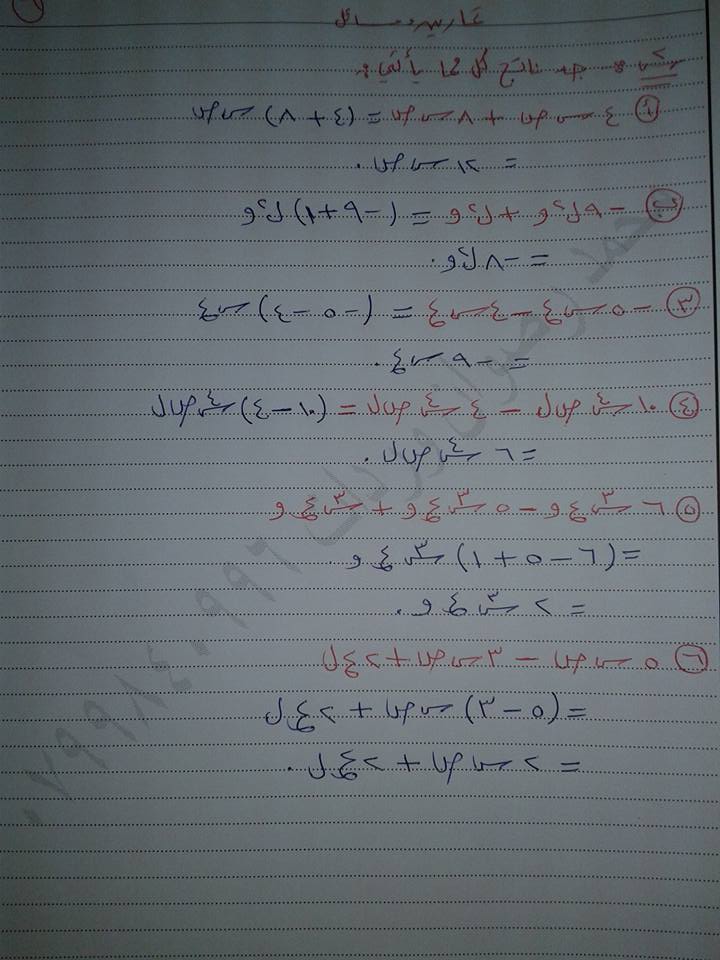 تمارين ومسائل
س٥ جد ناتج كل مما يأتي :
١ ٤ س ص + ٨ س ص = (٤ + ٨) س ص
= ١٢ س ص .
ب -٩ل٢و + ل٢و = (-٩+١) ل٢و
= -٨ ل٢و .
٣ -٥ س ع - ٤ س ع = (-٥ -٤) س ع
= -٩ س ع .
٤ ١٠ س٤ ص ل - ٤ س٤ ص ل = (١٠ - ٤) س٤ ص ل
= ٦ س٤ ص ل .
٥ ٦ س٣ ع و - ٥ س٣ ع و + س٣ ع و
= (٦ - ٥ + ١) س٣ ع و
= ٢ س٣ ع و .
٦ ٥ س ص - ٣ س ص + ٢ ع ل
= (٥ - ٣) س ص + ٢ ع ل
= ٢ س ص + ٢ ع ل .